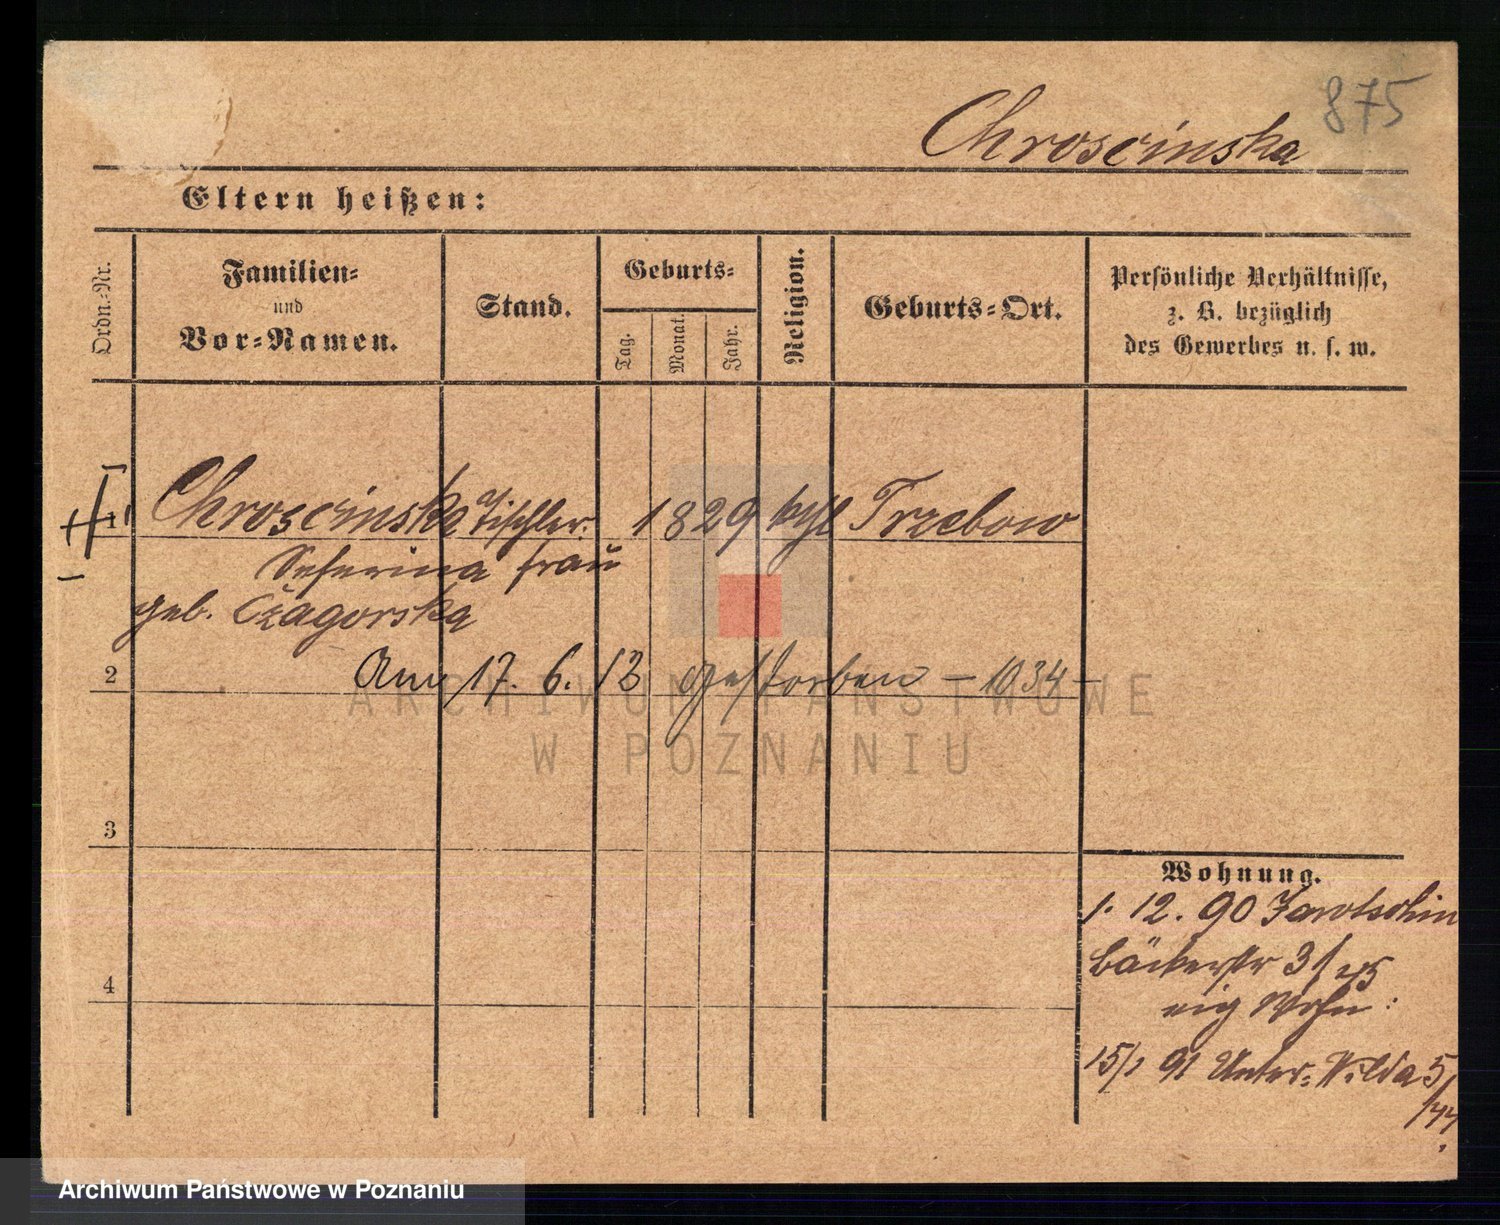 875
Chroscinska
Eltern heißen:
Ordn.-Nr.
Familien-
und
Vor-Namen.
Stand.
Geburts-
Tag.
Monat.
Jahr.
Religion.
Geburts-Ort.
Persönliche Verhältnisse,
z. B. bezüglich
des Gewerbes u. s. w.
1 Chroscinska Tischler 1829 kath Trzebow
frau
geb. Czagorska
2 Am 17. 6. 12 gestorben – 1034 –
3
4
Wohnung.
1. 12. 90 Jarotschin
Bäckerstr 31
15/1 91 Unter-Wilda 5
ARCHIWUM PAŃSTWOWE
W POZNANIU
Archiwum Państwowe w Poznaniu